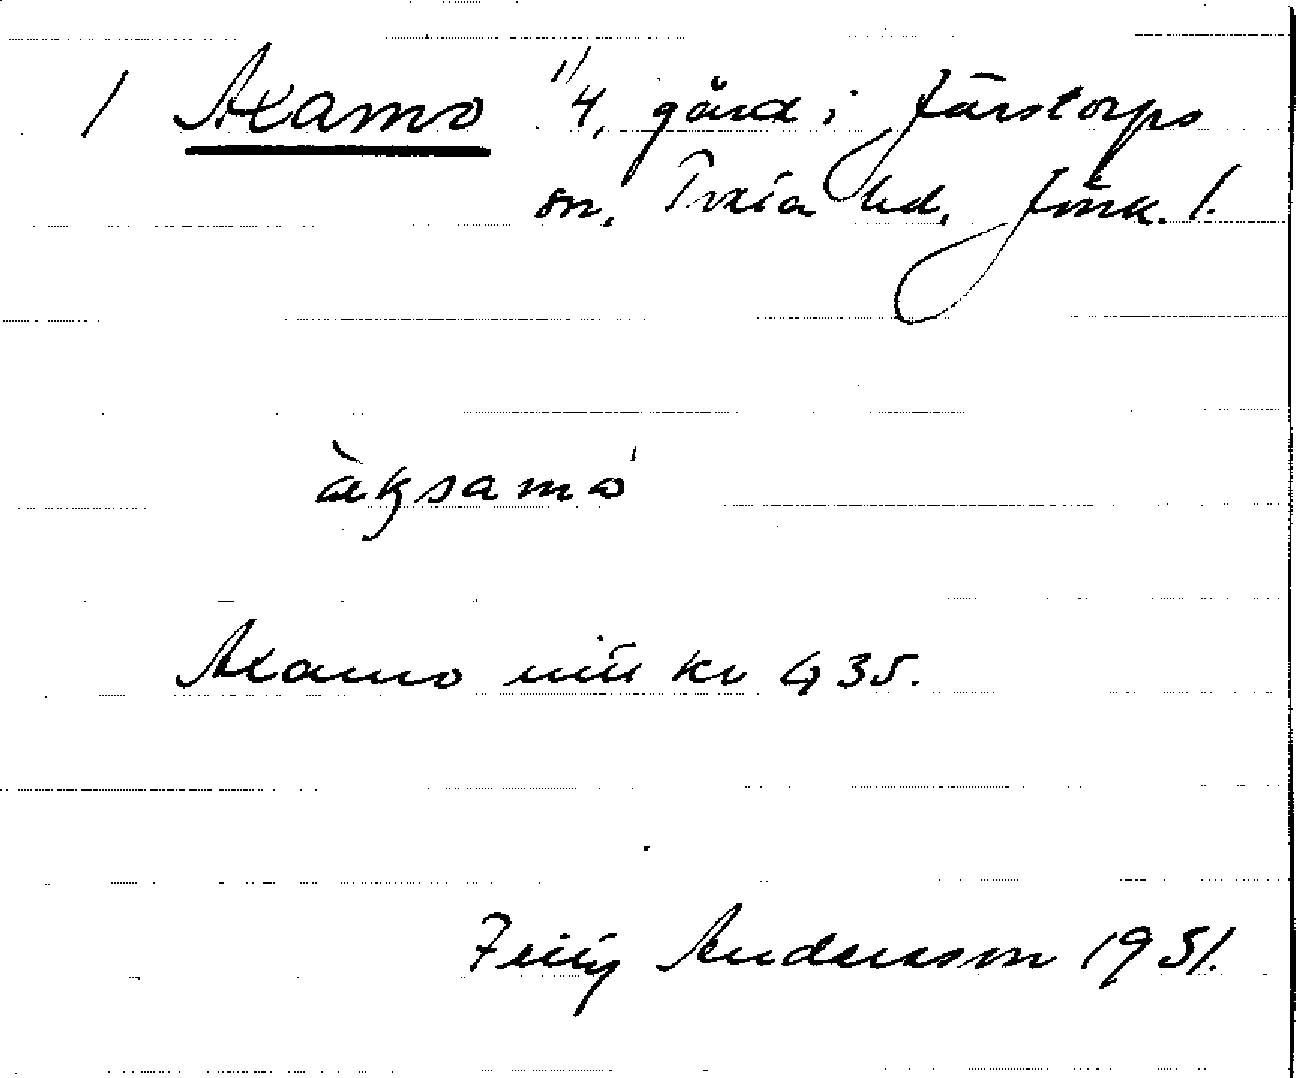 1 Axamo 1/4, gård i Järstorps
sn, Tveta hd, Jönk. l.
àksamó
Axamo mtl kv 435.
Andersson 1951.